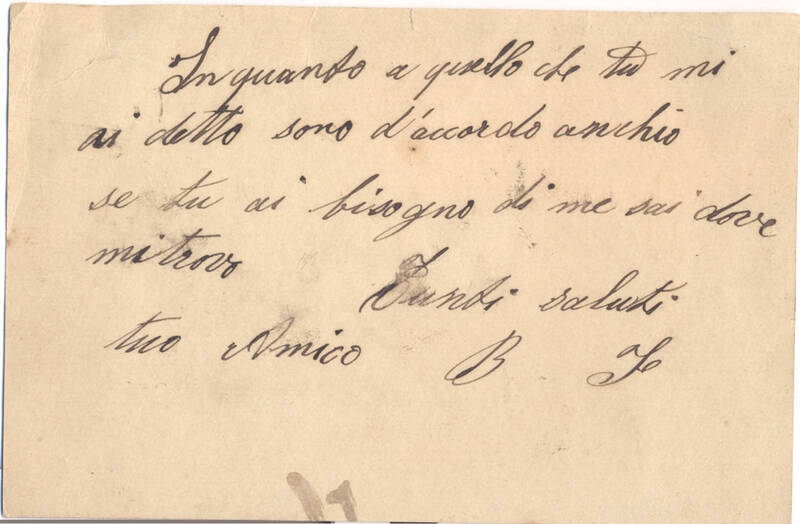 In quanto a quello che tu mi
ai detto sono d'accordo anchio
se tu ai bisogno di me sai dove
mi trovo Tanti saluti
tuo Amico B F